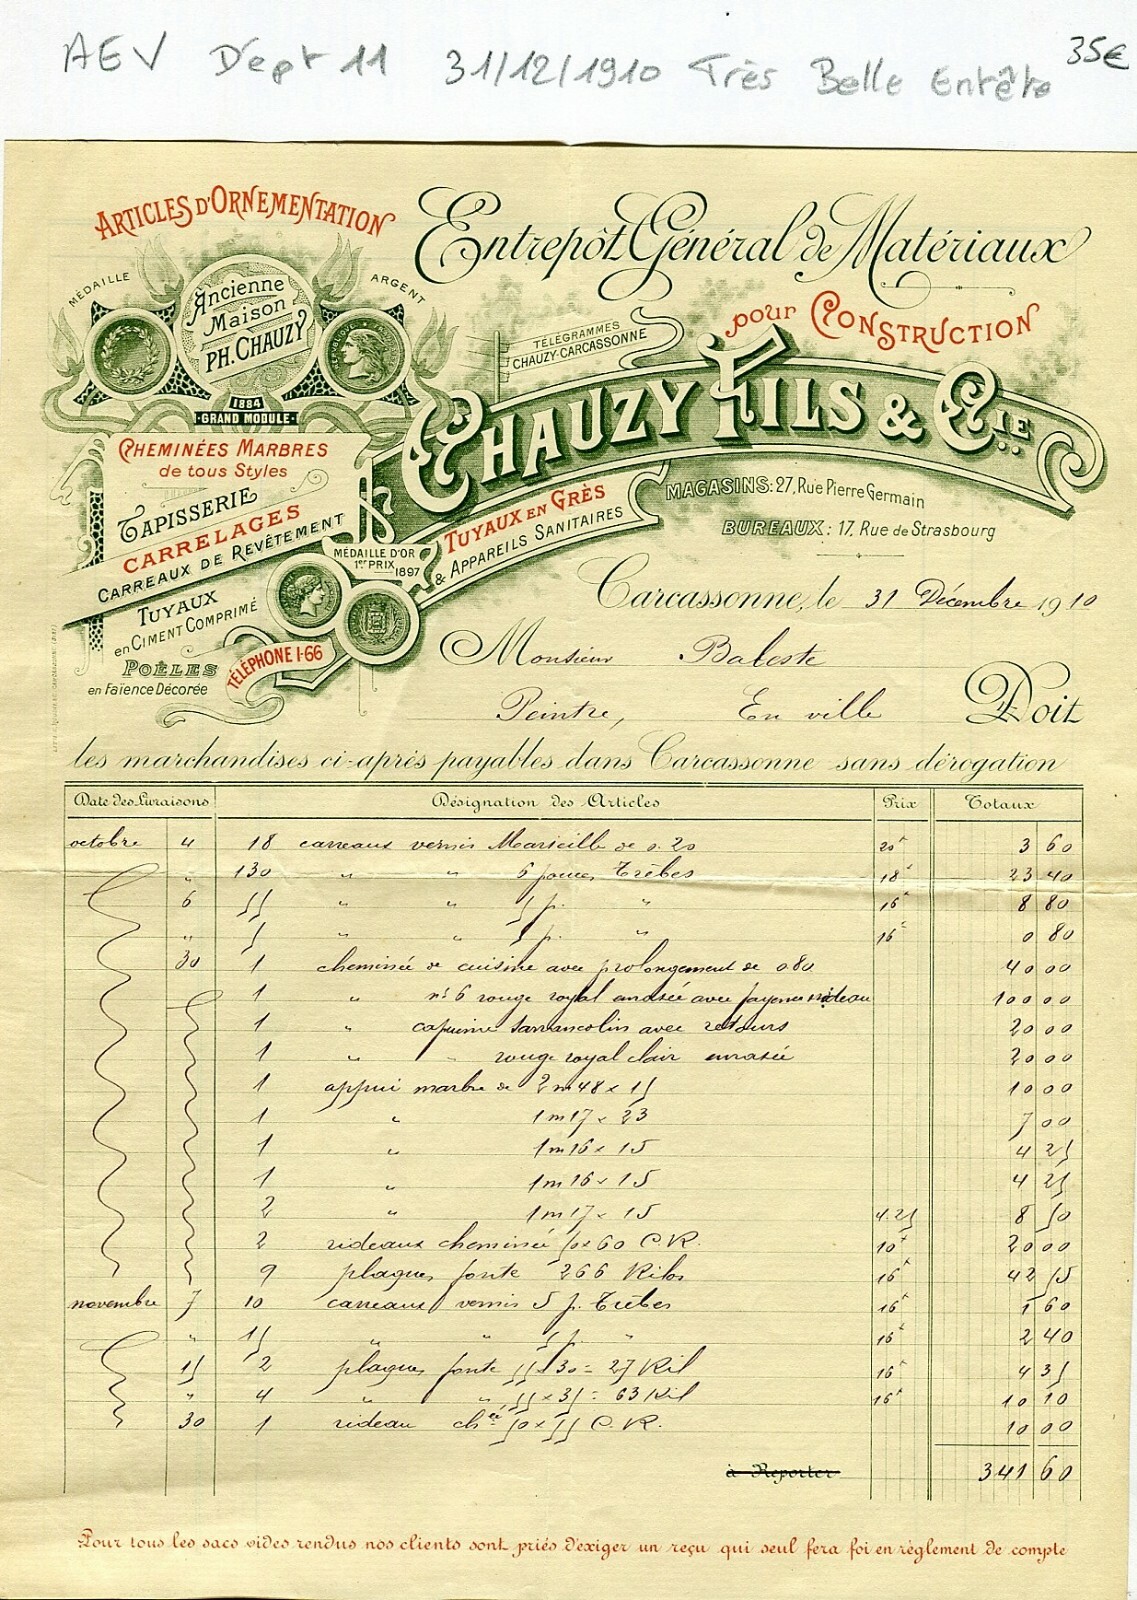 AEV Dept 11 31/12/1910 Très Belle Entête 35€
ARTICLES D'ORNEMENTATION
MÉDAILLE ARGENT
Ancienne
Maison
PH. CHAUZY
1884
GRAND MODULE
Entrepôt Général de Matériaux
pour CONSTRUCTION
TÉLÉGRAMMES
CHAUZY-CARCASSONNE
CHAUZY FILS & CIE
CHEMINÉES MARBRES
de tous Styles
TAPISSERIE
CARRELAGES
CARREAUX DE REVÊTEMENT
TUYAUX
en CIMENT COMPRIMÉ
POÊLES
en Faïence Décorée
MÉDAILLE D'OR
1er PRIX 1897
TÉLÉPHONE 1-66
TUYAUX EN GRÈS
& APPAREILS SANITAIRES
MAGASINS: 27, Rue Pierre Germain
BUREAUX: 17, Rue de Strasbourg
Carcassonne, le 31 Décembre 1910
Monsieur Baleste
Peintre, En ville Doit
les marchandises ci-après payables dans Carcassonne sans dérogation
Date des Livraisons Désignation des Articles Prix Totaux
octobre 4 18 carreaux vernis Marseille de 0.20 20c 3 60
" 130 " " 6 pouces Trèbes 18c 23 40
6 55 " " 5 p. " 16c 8 80
" 5 " " 5 p. " 16c 0 80
30 1 cheminée de cuisine avec prolongement de 080 40 00
1 " n° 6 rouge royal arrasée avec rideau 100 00
1 " capucine Sarrancolin avec retours 20 00
1 " " rouge royal clair arrasée 20 00
1 appui marbre de 2m48 x 15 10 00
1 " 1m17 x 23 7 00
1 " 1m16 x 15 4 25
1 " 1m16 x 15 4 25
2 " 1m17 x 15 4.25 8 50
2 rideaux cheminée 50 x 60 C.R. 10f 20 00
9 plaques fonte 266 Kilos 16c 42 55
novembre 7 10 carreaux vernis 5 p. Trèbes 16c 1 60
" 15 " " 5 p. " 16c 2 40
15 2 plaques fonte 55 x 30 = 27 Kil 16c 4 35
" 4 " " 55 x 35 = 63 Kil 16c 10 10
30 1 rideau chée 50 x 55 C.R. 10 00
à Reporter 341 60
Pour tous les sacs vides rendus nos clients sont priés d'exiger un reçu qui seul fera foi en règlement de compte